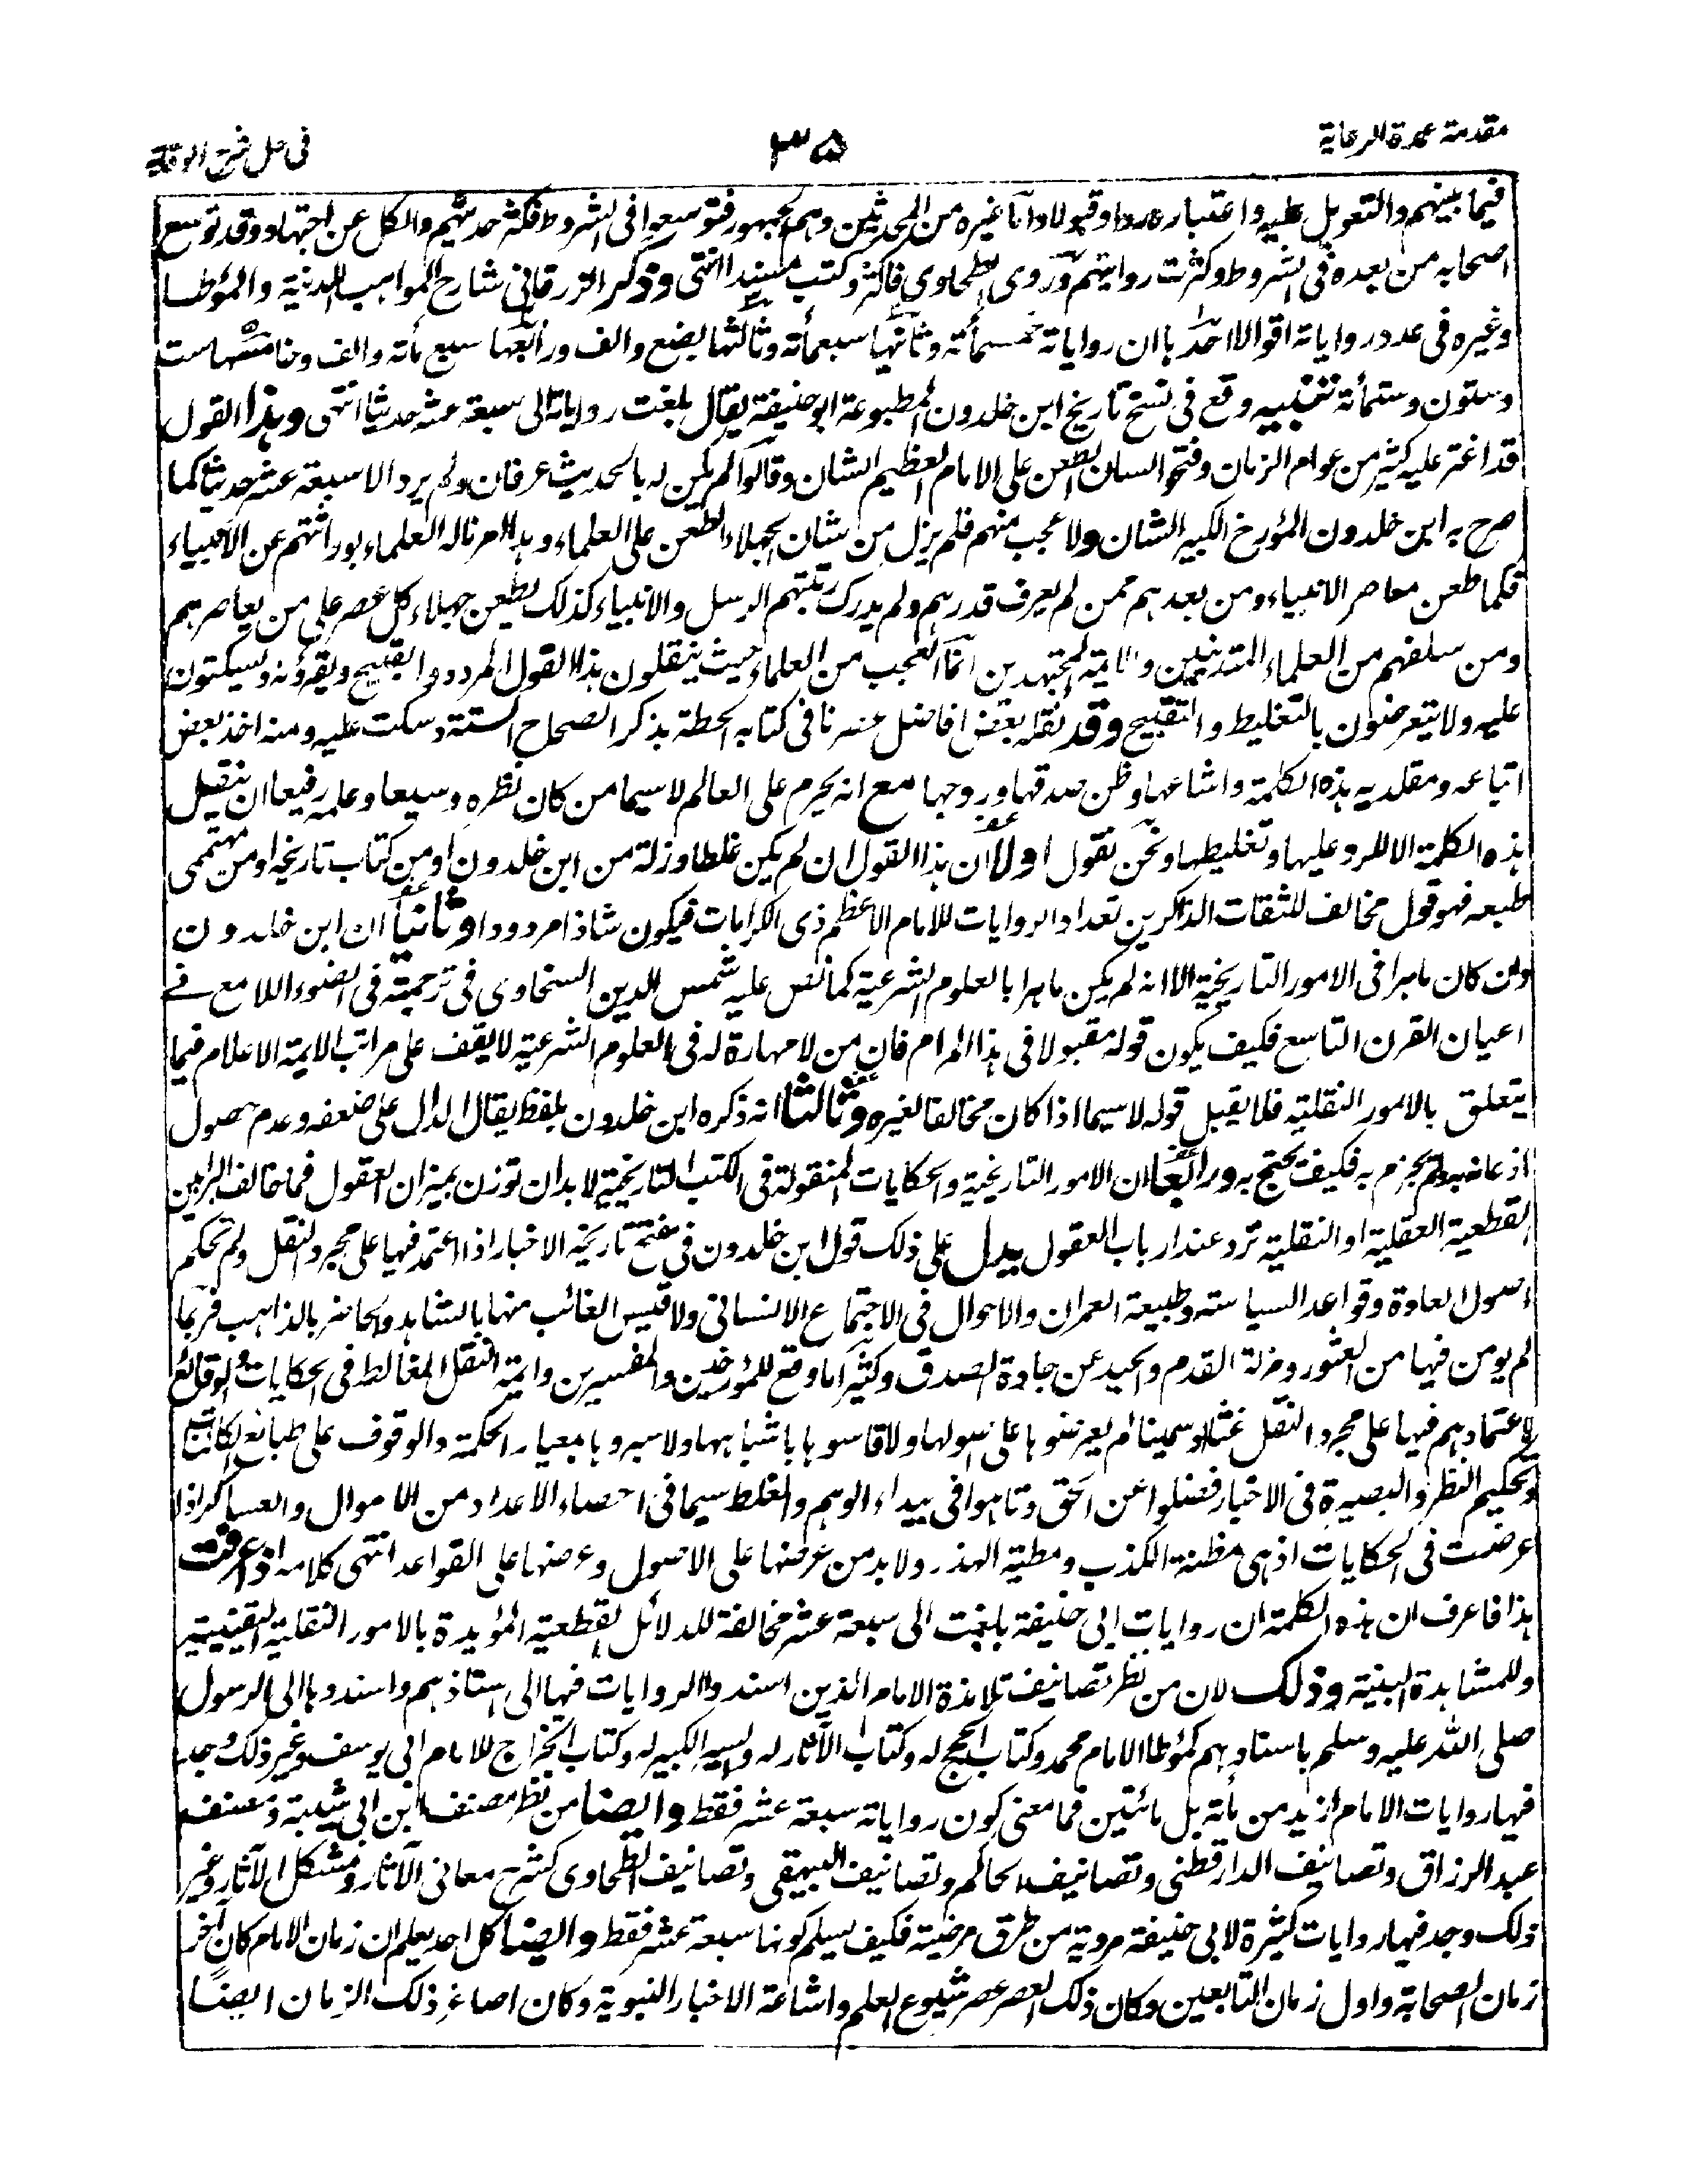 مقدمة عمدة الرعاية
٣٥
فى حل شرح الوقاية
فيما بينهم والتعويل عليه واعتباره ردا وقبولا واما غيره من المحدثين وهم الجمهور فتوسعوا فى الشروط فكثر حديثهم والكل عن اجتهاد وقد توسع
اصحابه من بعده فى الشروط وكثرت روايتهم وروى الطحاوى فاكثر وكتب مسندا انتهى وذكر الزرقانى شارح المواهب اللدنية والمؤطا
وغيره فى عدد رواياته اقوالا احدها ان رواياته خمسمأئة وثانيها سبعمأئة وثالثها بضع والف ورابعها سبع مأئة والف وخامسها ست
وستون وستمأئة تنبيه وقع فى نسخ تاريخ ابن خلدون المطبوعة ابو حنيفة يقال بلغت رواياته الى سبعة عشر حديثا انتهى وهذا القول
قد اغتر عليه كثير من عوام الزمان وفتحوا لسان الطعن على الامام العظيم الشان وقالوا لم يكن له بالحديث عرفان ولم يرو الا سبعة عشر حديثا كما
صرح به ابن خلدون المؤرخ الكبير الشان ولا عجب منهم فلم يزل من شان الجهلاء الطعن على العلماء وهذا امر ناله العلماء بوراثتهم عن الانبياء
فكما طعن معاصر الانبياء ومن بعدهم ممن لم يعرف قدرهم ولم يدرك رتبتهم الرسل والانبياء كذلك يطعن جهلاء كل عصر على من يعاصرهم
ومن سلفهم من العلماء المتدينين والائمة المجتهدين انما العجب من العلماء حيث ينقلون هذا القول المردود القبيح ويقرؤنه ويسكتون
عليه ولا يتعرضون بالتغليط والتقبيح وقد نقله بعض افاضل عصرنا فى كتابه الحطة بذكر الصحاح الستة وسكت عليه ومنه اخذ بعض
اتباعه ومقلديه هذه الكلمة واشاعها وظن صدقها وروجها مع انه يحرم على العالم لا سيما من كان نظره وسيعا وعلمه رفيعا ان ينقل
هذه الكلمة الا للرد عليها وتغليطها ونحن نقول اولا ان هذا القول ان لم يكن غلطا وزلة من ابن خلدون او من كتاب تاريخه او من مهتممى
طبعه فهو قول مخالف للثقات الذاكرين تعداد الروايات للامام الاعظم ذى الكرامات فيكون شاذا مردودا وثانيا ان ابن خلدون
وان كان ماهرا فى الامور التاريخية الا انه لم يكن ماهرا بالعلوم الشرعية كما نص عليه شمس الدين السخاوى فى ترجمته فى الضوء اللامع فى
اعيان القرن التاسع فكيف يكون قوله مقبولا فى هذا المرام فان من لا مهارة له فى العلوم الشرعية لا يقف على مراتب الائمة الاعلام فيما
يتعلق بالامور النقلية فلا يقبل قوله لا سيما اذا كان مخالفا لغيره وثالثا انه ذكره ابن خلدون بلفظ يقال الدال على ضعفه وعدم حصول
اذعانه ولم يجزم به فكيف يحتج به ورابعا ان الامور التاريخية والحكايات المنقولة فى الكتب التاريخية لا بد ان توزن بميزان العقول فما خالف البراهين
القطعية العقلية او النقلية ترد عند ارباب العقول يدل على ذلك قول ابن خلدون فى مفتتح تاريخه الاخبار اذا اعتمد فيها على مجرد النقل ولم تحكم
اصول العادة وقواعد السياسة وطبيعة العمران والاحوال فى الاجتماع الانسانى ولا قيس الغائب منها بالشاهد والحاضر بالذاهب فربما
لم يومن فيها من العثور ومزلة القدم والحيد عن جادة الصدق وكثيرا ما وقع للمؤرخين والمفسرين وائمة النقل المغالط فى الحكايات والوقائع
لاعتمادهم فيها على مجرد النقل غثا او سمينا لم يعرضوها على اصولها ولا قاسوها باشباهها ولا سبروها بمعيار الحكمة والوقوف على طبائع الكائنات
وتحكيم النظر والبصيرة فى الاخبار فضلوا عن الحق وتاهوا فى بيداء الوهم والغلط سيما فى احصاء الاعداد من الاموال والعساكر اذا
عرضت فى الحكايات اذ هى مظنة الكذب ومطية الهذر ولا بد من عرضها على الاصول وعرضها على القواعد انتهى كلامه اذا عرفت
هذا فاعرف ان هذه الكلمة ان روايات ابى حنيفة بلغت الى سبعة عشر مخالفة للدلائل القطعية المؤيدة بالامور النقلية اليقينية
وللمشاهدة البينة وذلك لان من نظر تصانيف تلامذة الامام الذين اسندوا الروايات فيها الى استاذهم واسندوها الى الرسول
صلى الله عليه وسلم باسنادهم كمؤطا الامام محمد وكتاب الحجج له وكتاب الآثار له والسير الكبير له وكتاب الخراج للامام ابى يوسف وغير ذلك وجد
فيها روايات الامام ازيد من مأئة بل مائتين فما معنى كون رواياته سبعة عشر فقط وايضا من نظر مصنف ابن ابى شيبة ومصنف
عبد الرزاق وتصانيف الدارقطنى وتصانيف الحاكم وتصانيف البيهقى وتصانيف الطحاوى كشرح معانى الآثار ومشكل الآثار وغير
ذلك وجد فيها روايات كثيرة لابى حنيفة مروية من طرق مرضية فكيف يسلم كونها سبعة عشر فقط وايضا كل احد يعلم ان زمان الامام كان آخر
زمان الصحابة واول زمان التابعين وكان ذلك العصر عصر شيوع العلم واشاعة الاخبار النبوية وكان اصاغر ذلك الزمان ايضا